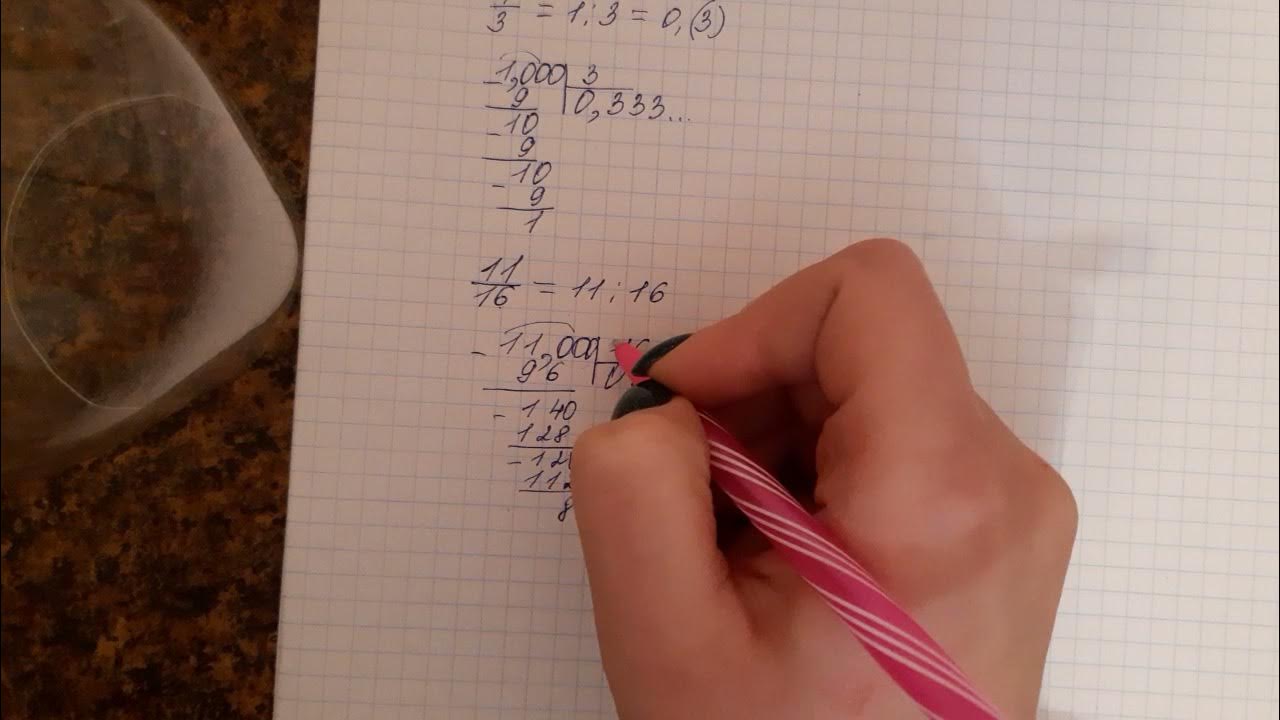 3 = 1 : 3 = 0,(3)
- 1,000 | 3
9 | 0,333...
- 10
9
- 10
9
1
11/16 = 11 : 16
- 11,000
96
- 140
128
- 12
11
8